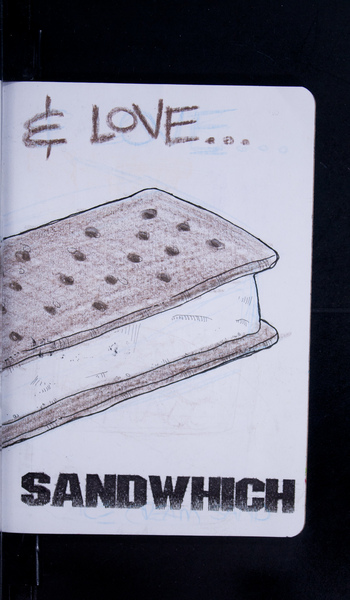 & LOVE...
SANDWHICH